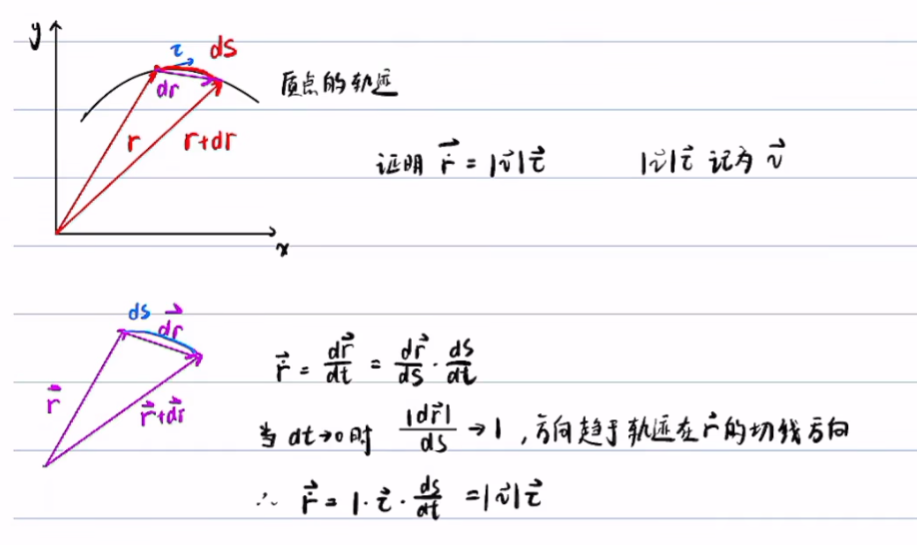 y
τ
ds
dr
质点的轨迹
r
r+dr
证明 $\dot{\vec{r}} = |\vec{v}|\vec{τ}$
$|\vec{v}|\vec{τ}$ 记为 $\vec{v}$
x
ds
$\vec{dr}$
$\vec{r}$
$\vec{r}+\vec{dr}$
$\dot{\vec{r}} = \frac{d\vec{r}}{dt} = \frac{d\vec{r}}{ds} \cdot \frac{ds}{dt}$
当 dt→0时 $\frac{|d\vec{r}|}{ds} → 1$ ,方向趋于轨迹在 $\vec{r}$ 的切线方向
∴ $\dot{\vec{r}} = 1 \cdot \vec{τ} \cdot \frac{ds}{dt} = |\vec{v}|\vec{τ}$